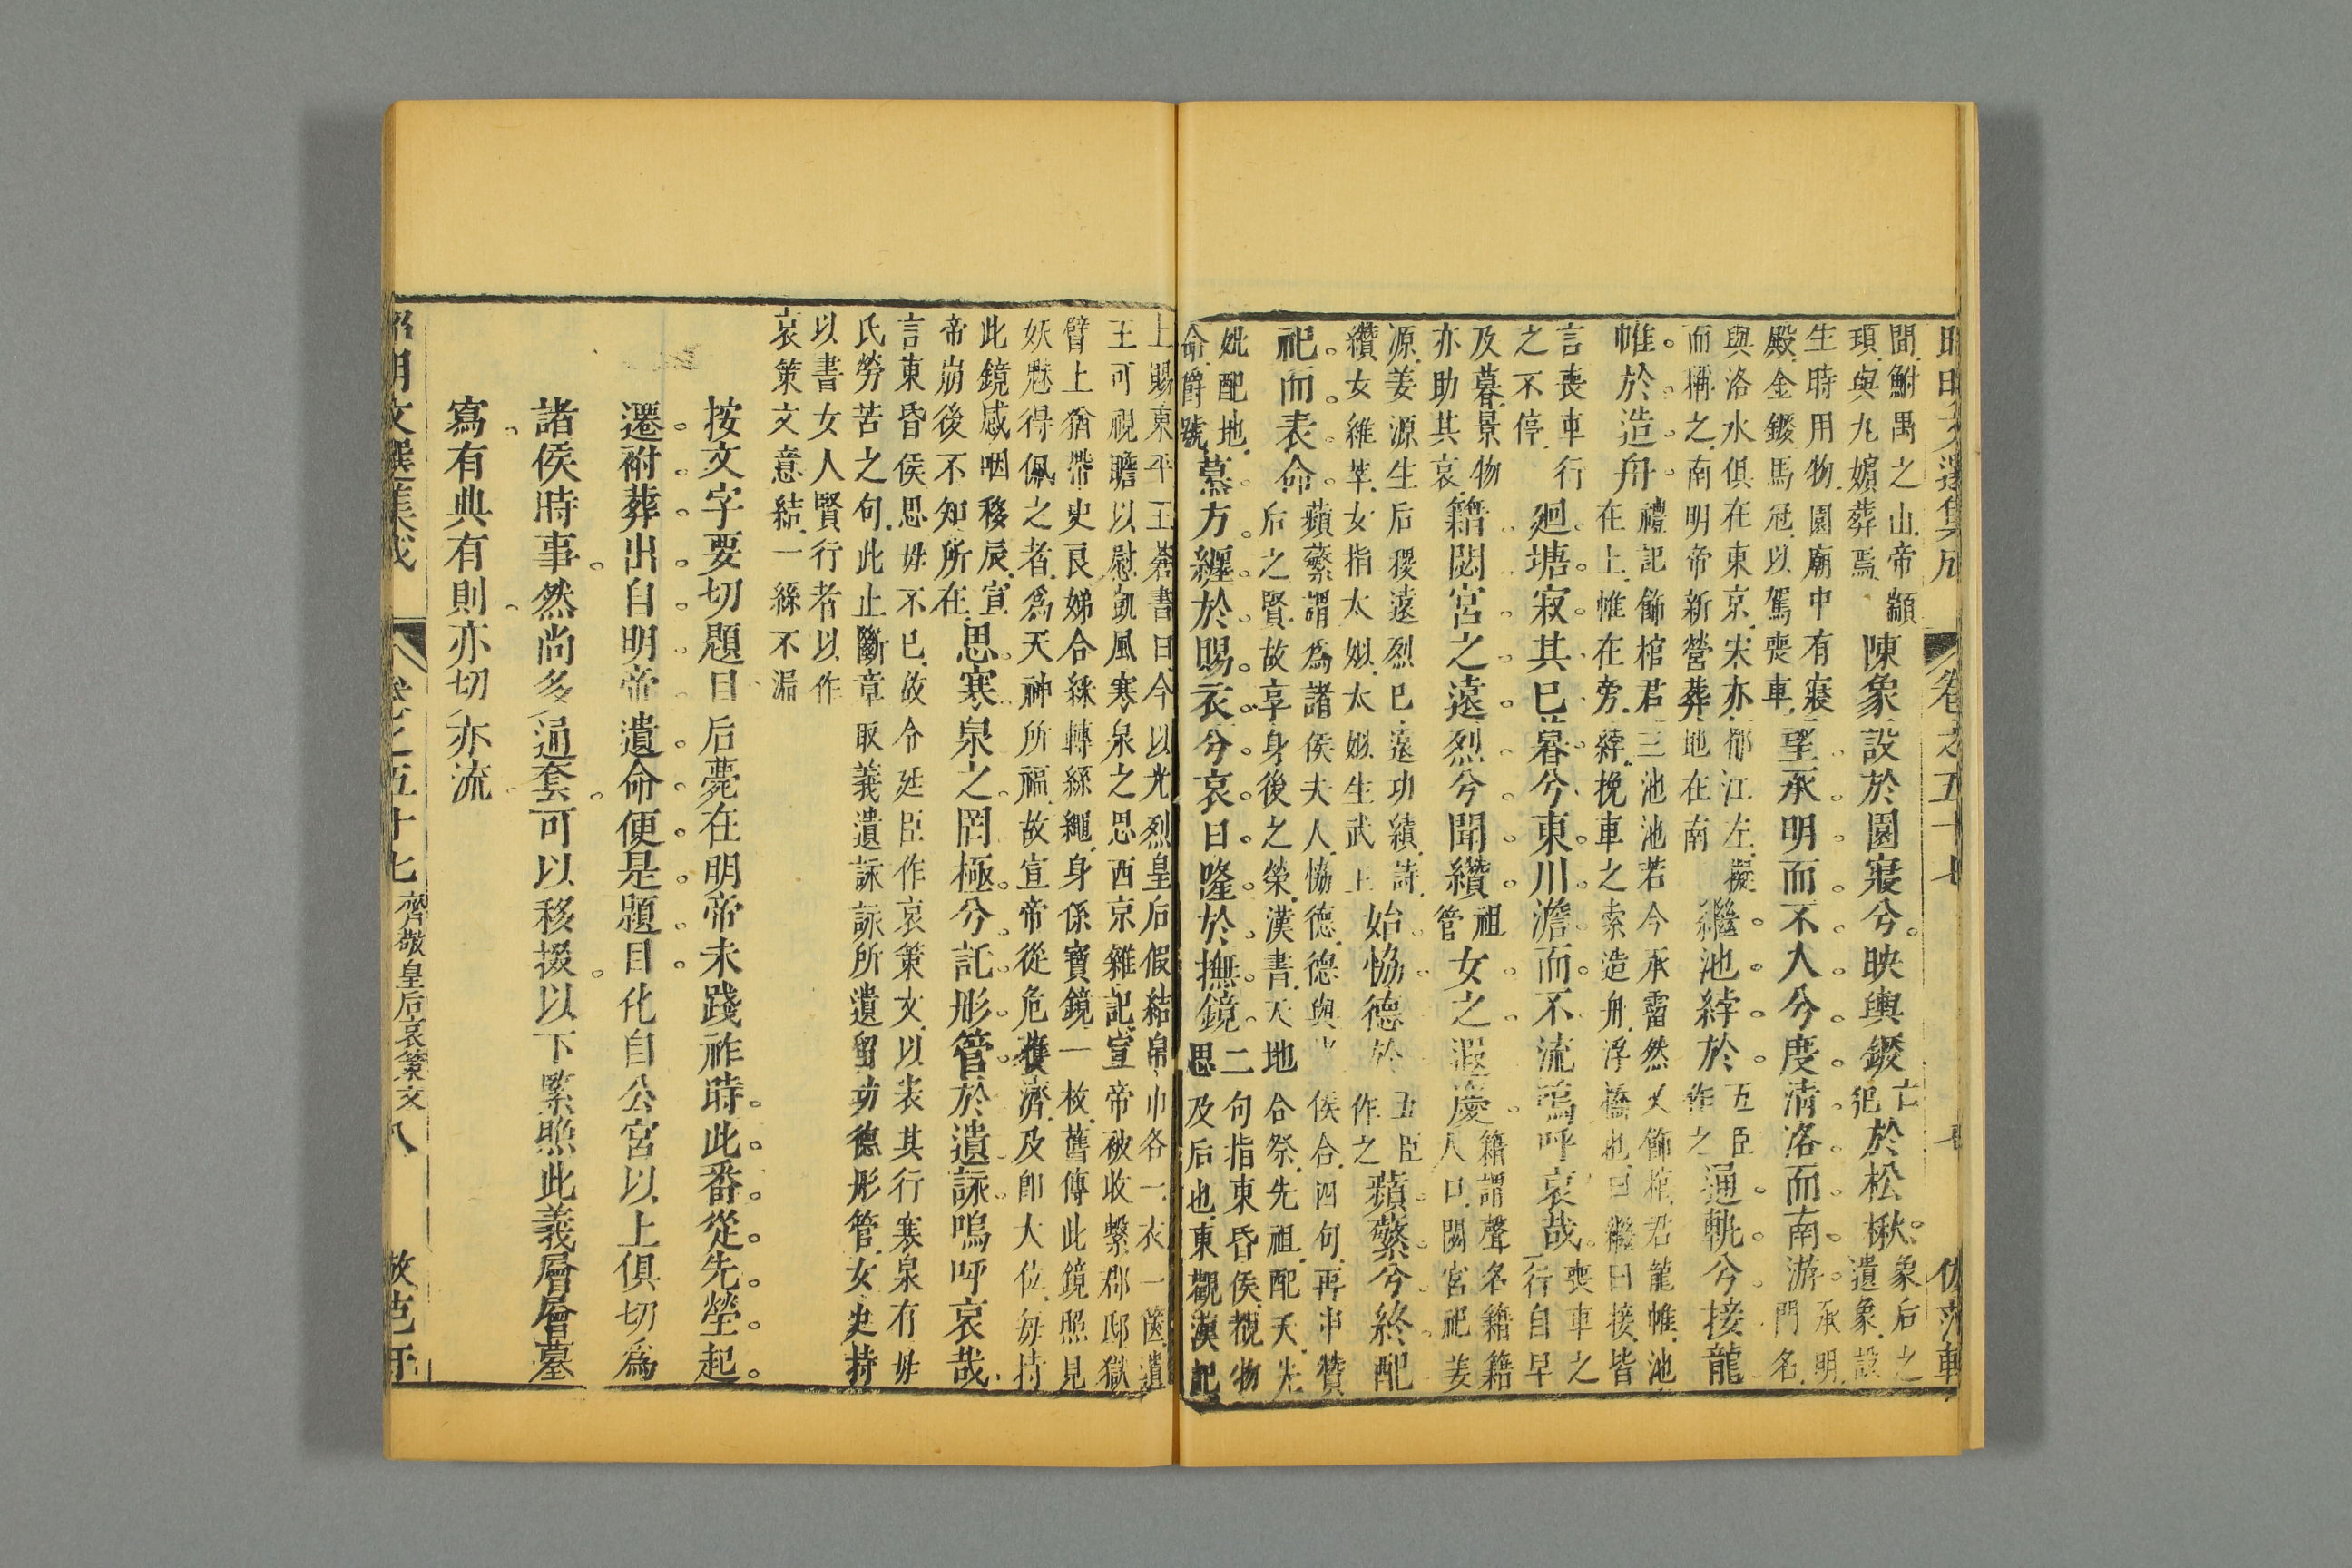 昭明文選集成 卷之五十七 七 倣范軒
間鮒禺之山帝顓
頊與九嬪葬焉
陳象設於園寢兮映輿鍐
亡
犯
於松楸
象后之
遺象設
生時用物園廟中有寢
殿金鍐馬冠以駕喪車
望承明而不入兮度清洛而南游
承明
門名
與洛水俱在東京宋亦都江左擬
而稱之南明帝新營葬地在南
繼池綍於
五臣
作之
通軌兮接龍
帷於造舟
禮記飾棺君三池池若今承霤然又飾棺君龍帷池
在上帷在旁綍挽車之索造舟浮橋也曰繼曰接皆
言喪車行
之不停
廻塘寂其已暮兮東川澹而不流嗚呼哀哉
喪車之
行自早
及暮景物
亦助其哀
籍閟宮之遠烈兮聞纘
祖
管
女之遐慶
籍謂聲名籍籍
人口閟宮祀姜
源姜源生后稷遠烈已遠功績詩
纘女維莘女指太姒太姒生武王
始恊德於
五臣
作之
蘋蘩兮終配
祀而表命
蘋蘩謂為諸侯夫人恊德德與侯合四句再申贊
后之賢故享身後之榮漢書天地合祭先祖配天先
妣配地
命爵號
慕方纏於賜衣兮哀日隆於撫鏡
二句指東昏侯覩物
思及后也東觀漢記
上賜東平王蒼書曰今以光烈皇后假結帛巾各一衣一篋遺
王可視瞻以慰凱風寒泉之思西京雜記宣帝被收繫郡邸獄
臂上猶帶史良娣合綵轉絲繩身係寶鏡一枚舊傳此鏡照見
妖魅得佩之者為天神所福故宣帝從危獲濟及卽大位每持
此鏡感咽移辰宣
帝崩後不知所在
思寒泉之罔極兮託彤管於遺詠嗚呼哀哉
言東昏侯思母不已故令廷臣作哀策文以表其行寒泉有母
氏勞苦之句此止斷章取義遺詠詠所遺留功德彤管女史持
以書女人賢行者以作
哀策文意結一絲不漏
按文字要切題目后薨在明帝未踐祚時此番從先塋起
遷祔葬出自明帝遺命便是題目化自公宮以上俱切為
諸侯時事然尚多通套可以移掇以下緊照此義層層摹
寫有典有則亦切亦流
昭明文選集成 卷之五十七 齊敬皇后哀策文 八 倣范軒